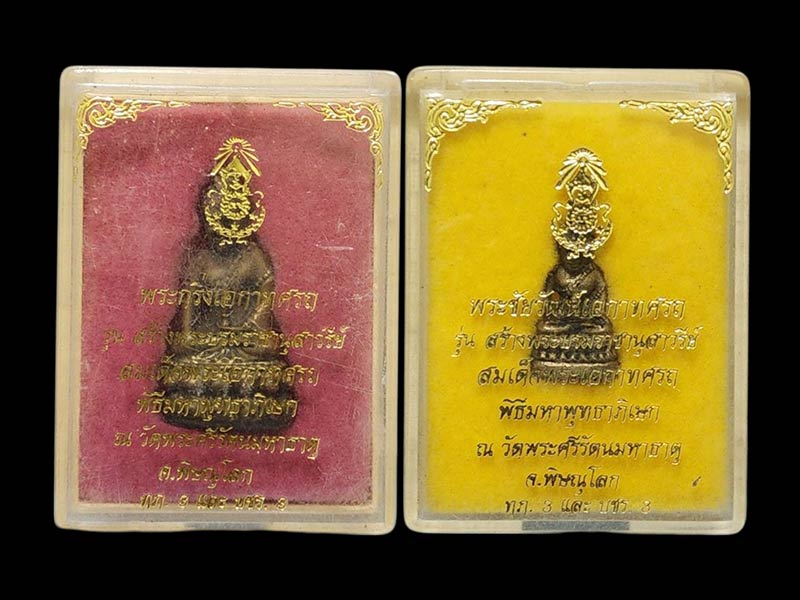 พระกริ่งเอกาทศรถ
รุ่น สร้างพระบรมราชานุสาวรีย์
สมเด็จพระเอกาทศรถ
พิธีมหาพุทธาภิเษก
ณ วัดพระศรีรัตนมหาธาตุ
จ.พิษณุโลก
ทภ. ๓ และ บชร. ๓
พระชัยวัฒน์เอกาทศรถ
รุ่น สร้างพระบรมราชานุสาวรีย์
สมเด็จพระเอกาทศรถ
พิธีมหาพุทธาภิเษก
ณ วัดพระศรีรัตนมหาธาตุ
จ.พิษณุโลก
ทภ. ๓ และ บชร. ๓